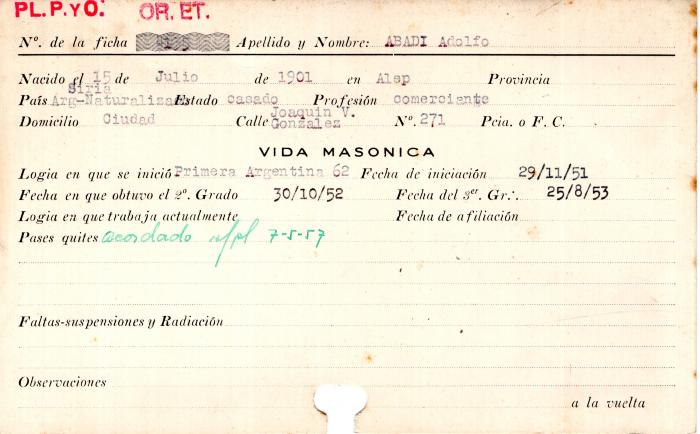 PL.P.yO. OR.ET.
Nº. de la ficha Apellido y Nombre: ABADI Adolfo
Nacido el 15 de Julio de 1901 en Alep Provincia
Siria
País Arg-Naturalizado Estado casado Profesión comerciante
Domicilio Ciudad Calle Joaquin V. Gonzalez Nº. 271 Pcia. o F. C.
VIDA MASONICA
Logia en que se inició Primera Argentina 62 Fecha de iniciación 29/11/51
Fecha en que obtuvo el 2º. Grado 30/10/52 Fecha del 3er. Gr∴. 25/8/53
Logia en que trabaja actualmente Fecha de afiliación
Pases quites acordado 7-5-57
Faltas-suspensiones y Radiación
Observaciones
a la vuelta